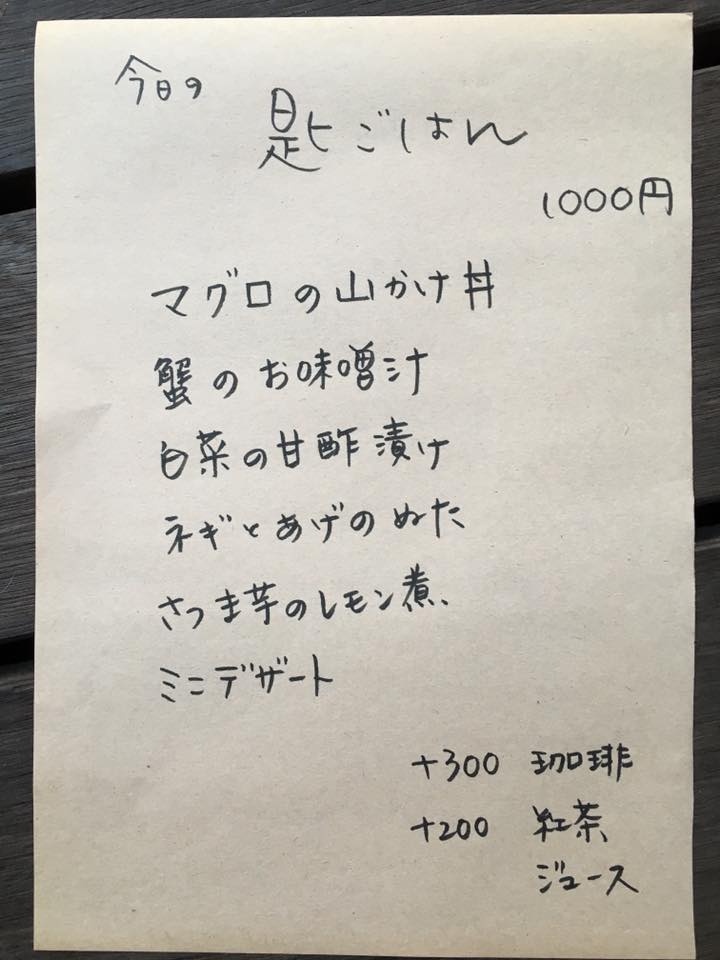 今日の
匙ごはん
1000円
マグロの山かけ丼
蟹のお味噌汁
白菜の甘酢漬け
ネギとあげのぬた
さつま芋のレモン煮
ミニデザート
+300 珈琲
+200 紅茶
ジュース